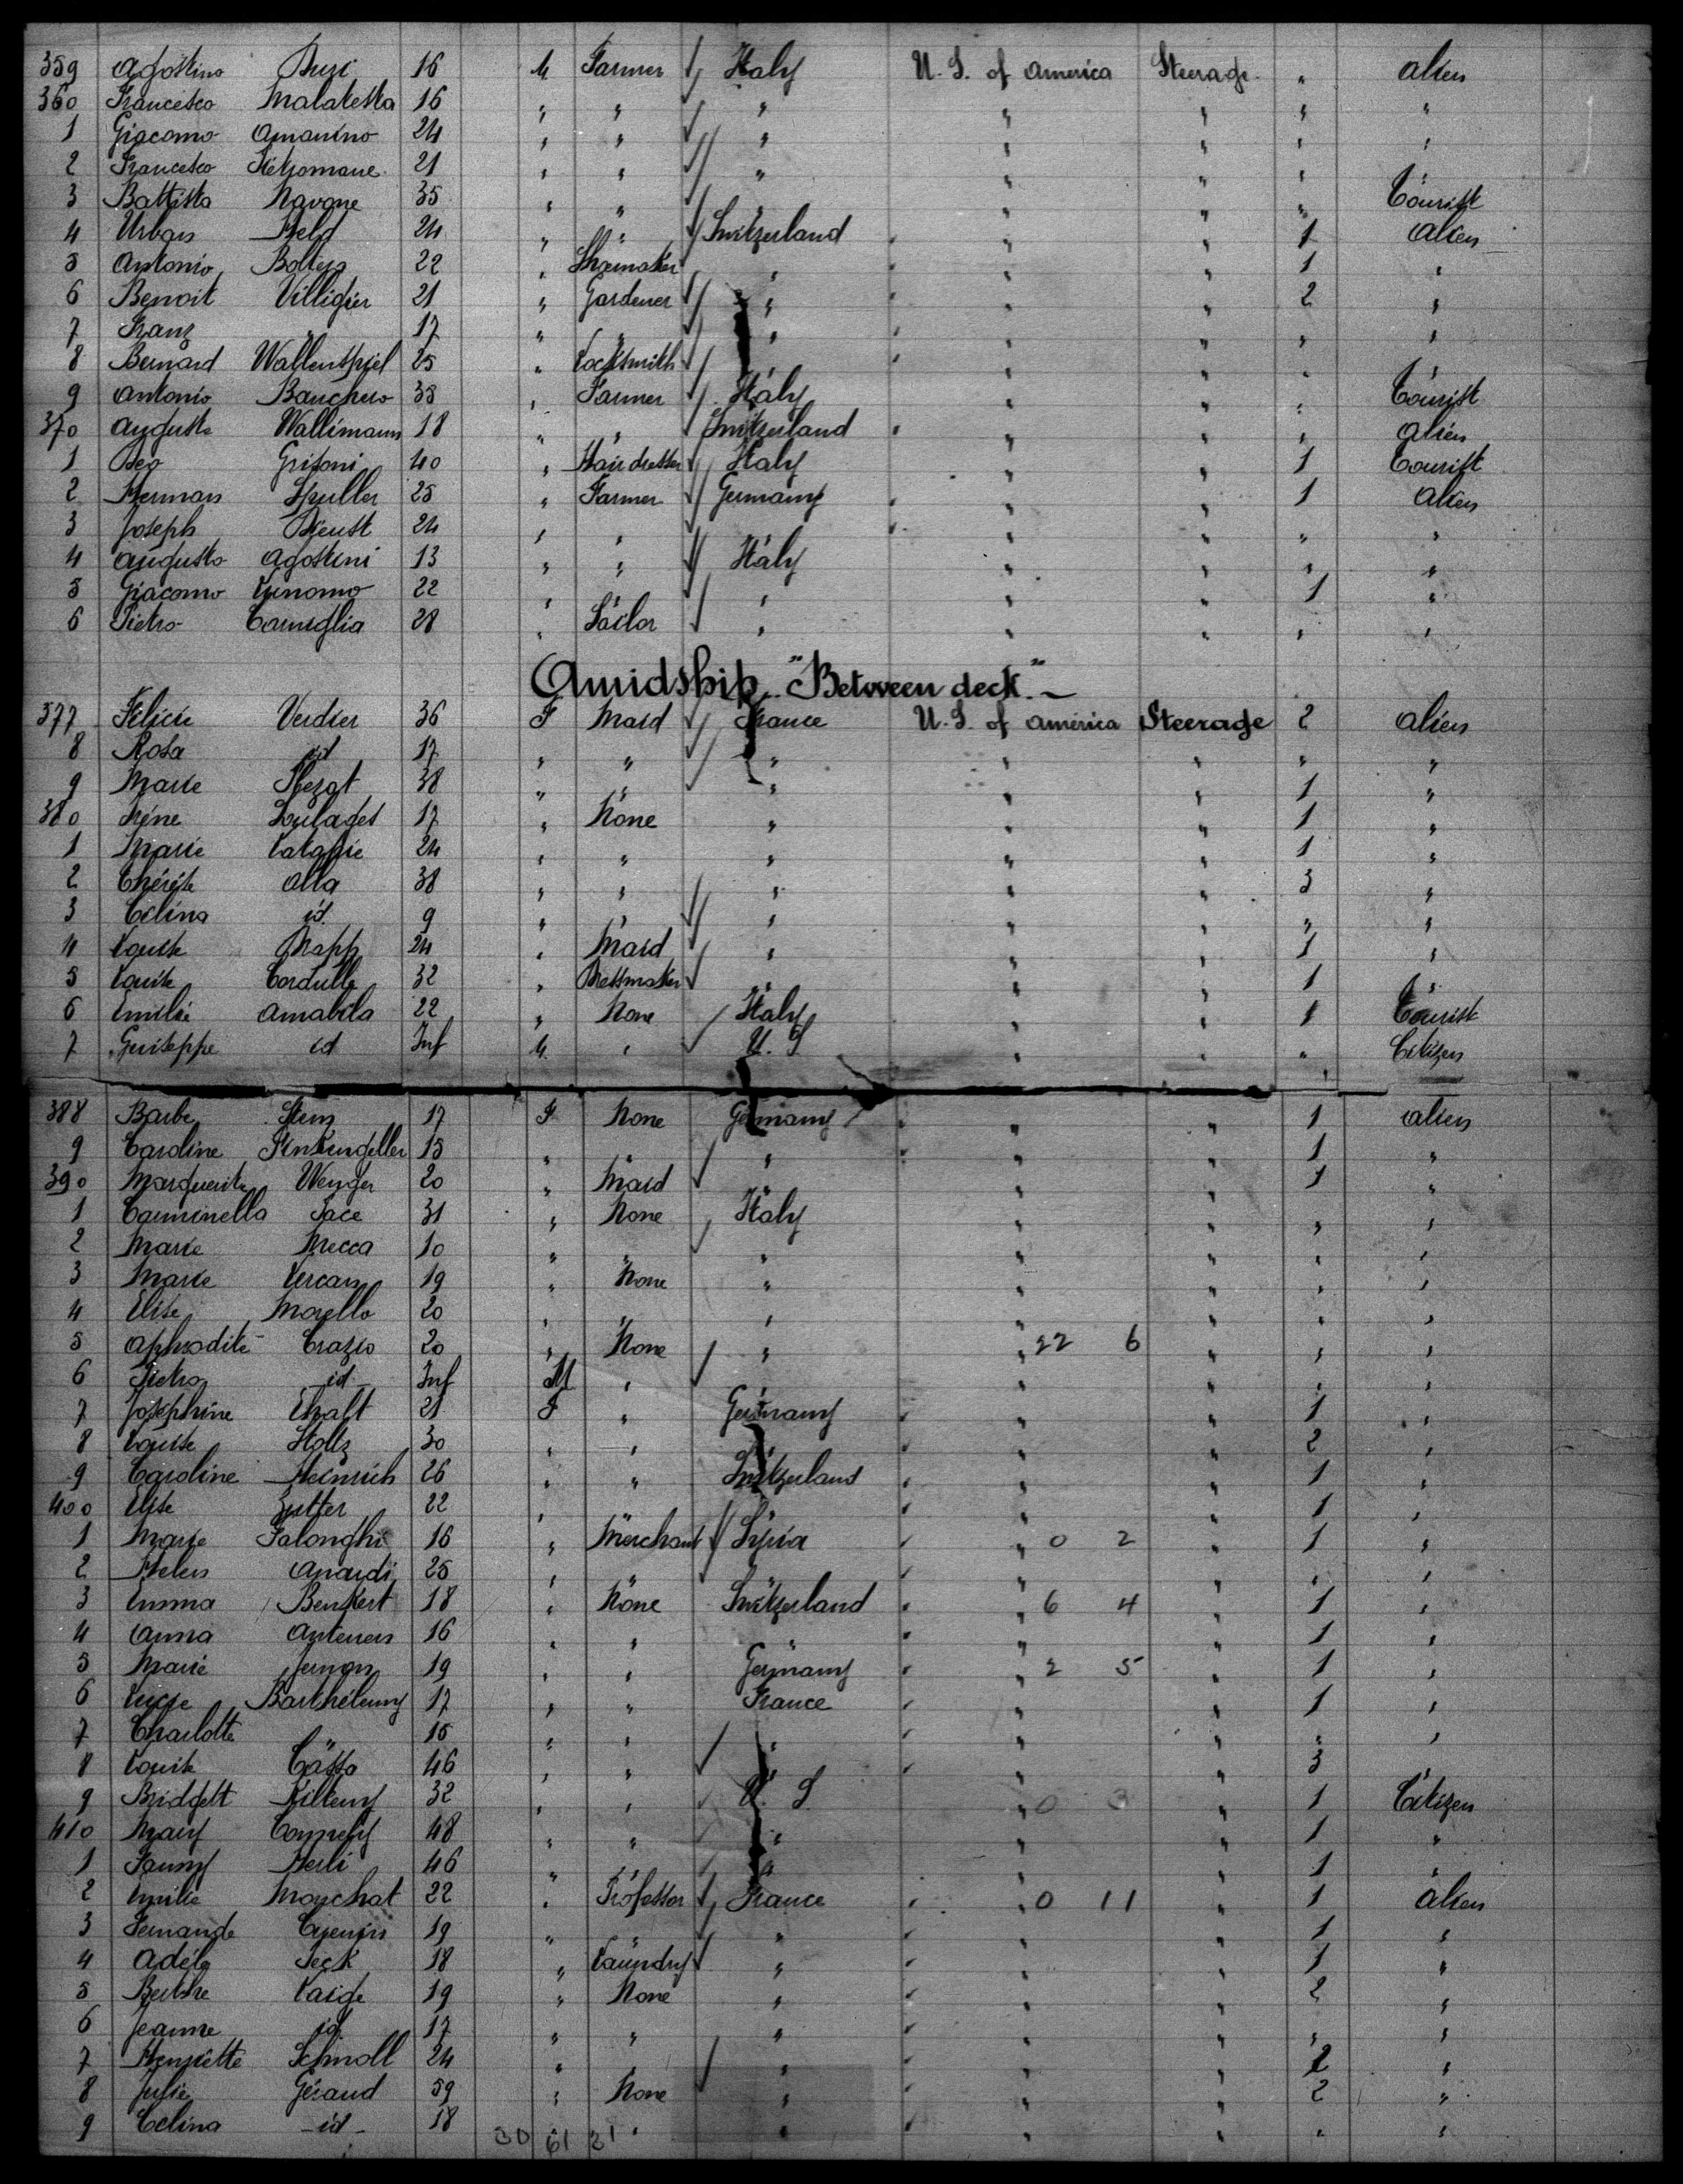 359 Agostino Busi 16 M Farmer Italy U.S. of America Steerage " alien
360 Francesco Malatesta 16 " " " " " " "
1 Giacomo Amanino 24 " " " " " " "
2 Francesco 21 " " " " " "
3 Battista Navone 35 " " " " " " Tourist
4 Urban Held 24 " " Switzerland " " 1 alien
5 Antonio 22 " Shoemaker " " " 1 "
6 Benoit Villigier 21 " Gardener " " " 2 "
7 Franz " 17 " " " " " " "
8 Bernard Wallenspiel 25 " Locksmith " " " "
9 Antonio Banchero 33 " Farmer Italy " " " Tourist
370 Auguste Wallimann 18 " " Switzerland " " " alien
1 Deo Grisoni 40 " Hairdresser Italy " " 1 Tourist
2 Herman Spuller 25 " Farmer Germany " " 1 alien
3 Joseph 24 " " " " " " "
4 Augusto Agostini 13 " " Italy " " " "
5 Giacomo 22 " " " " " 1 "
6 Pietro Corniglia 28 " Sailor " " " " "
Amidship "Between deck"
377 Félicie Verdier 36 F Maid France U.S. of America Steerage 2 alien
8 Rosa id 17 " " " " " " "
9 Marie 38 " " " " " 1 "
380 Soulages 17 " None " " " 1 "
1 Marie 24 " " " " " 1 "
2 Thérèse Alla 38 " " " " " 3 "
3 Célina id. 9 " " " " " " "
4 Louise 24 " Maid " " " 1 "
5 Louise 32 " Dressmaker " " " 1 "
6 Emilie Amabila 22 " None Italy " " 1 Tourist
7 Guiseppe id Inf M " U.S " " " Citizen
388 Barbe Stein 17 F None Germany " " 1 alien
9 Caroline 15 " " " " " 1 "
390 Marguerite Wenger 20 " Maid " " " 1 "
1 Carminella Pace 31 " None Italy " " " "
2 Marie Mecca 10 " " " " " " "
3 Marie 19 " None " " " " "
4 Elise Morello 20 " " " " " " "
5 Aphrodite Crazio 20 " None " " 22 6 " " "
6 Pietro id Inf M " " " " "
7 Joséphine 21 F " Germany " " 1 "
8 Louise Stoltz 30 " " " " 2 "
9 Caroline Heinrich 26 " " Switzerland " " 1 "
400 Elise Zutter 22 " " " 1 "
1 Marie Falonghi 16 " Merchant Syria " 0 2 " 1 "
2 Helen Anardi 25 " " " " " " "
3 Emma Benkert 18 " None Switzerland " 6 4 " 1 "
4 Anna Antenen 16 " " " " " 1 "
5 Marie 19 " " Germany " 2 5 " 1 "
6 Lucie Barthélemy 17 " " France " " 1 "
7 Charlotte " 15 " " " " " " "
8 Louise 46 " " " " " 3 "
9 Bridgett Kilkenny 32 " " U. S. " 0 3 " 1 Citizen
410 Mary 48 " " " " " 1 "
1 Fanny Merli 46 " " " " " 1 "
2 Emilie Mouchat 22 " Professor France " 0 11 " 1 alien
3 Fernande 19 " " " " " 1 "
4 Adèle 18 " Laundry " " " 1 "
5 Berthe Laige 19 " None " " " 2 "
6 Jeanne id. 17 " " " " " " "
7 Henriette Schmoll 24 " " " " 2 "
8 Julie Géraud 59 " None " " " 2 "
9 Célina id 18 " " " " " " "
30 61 31